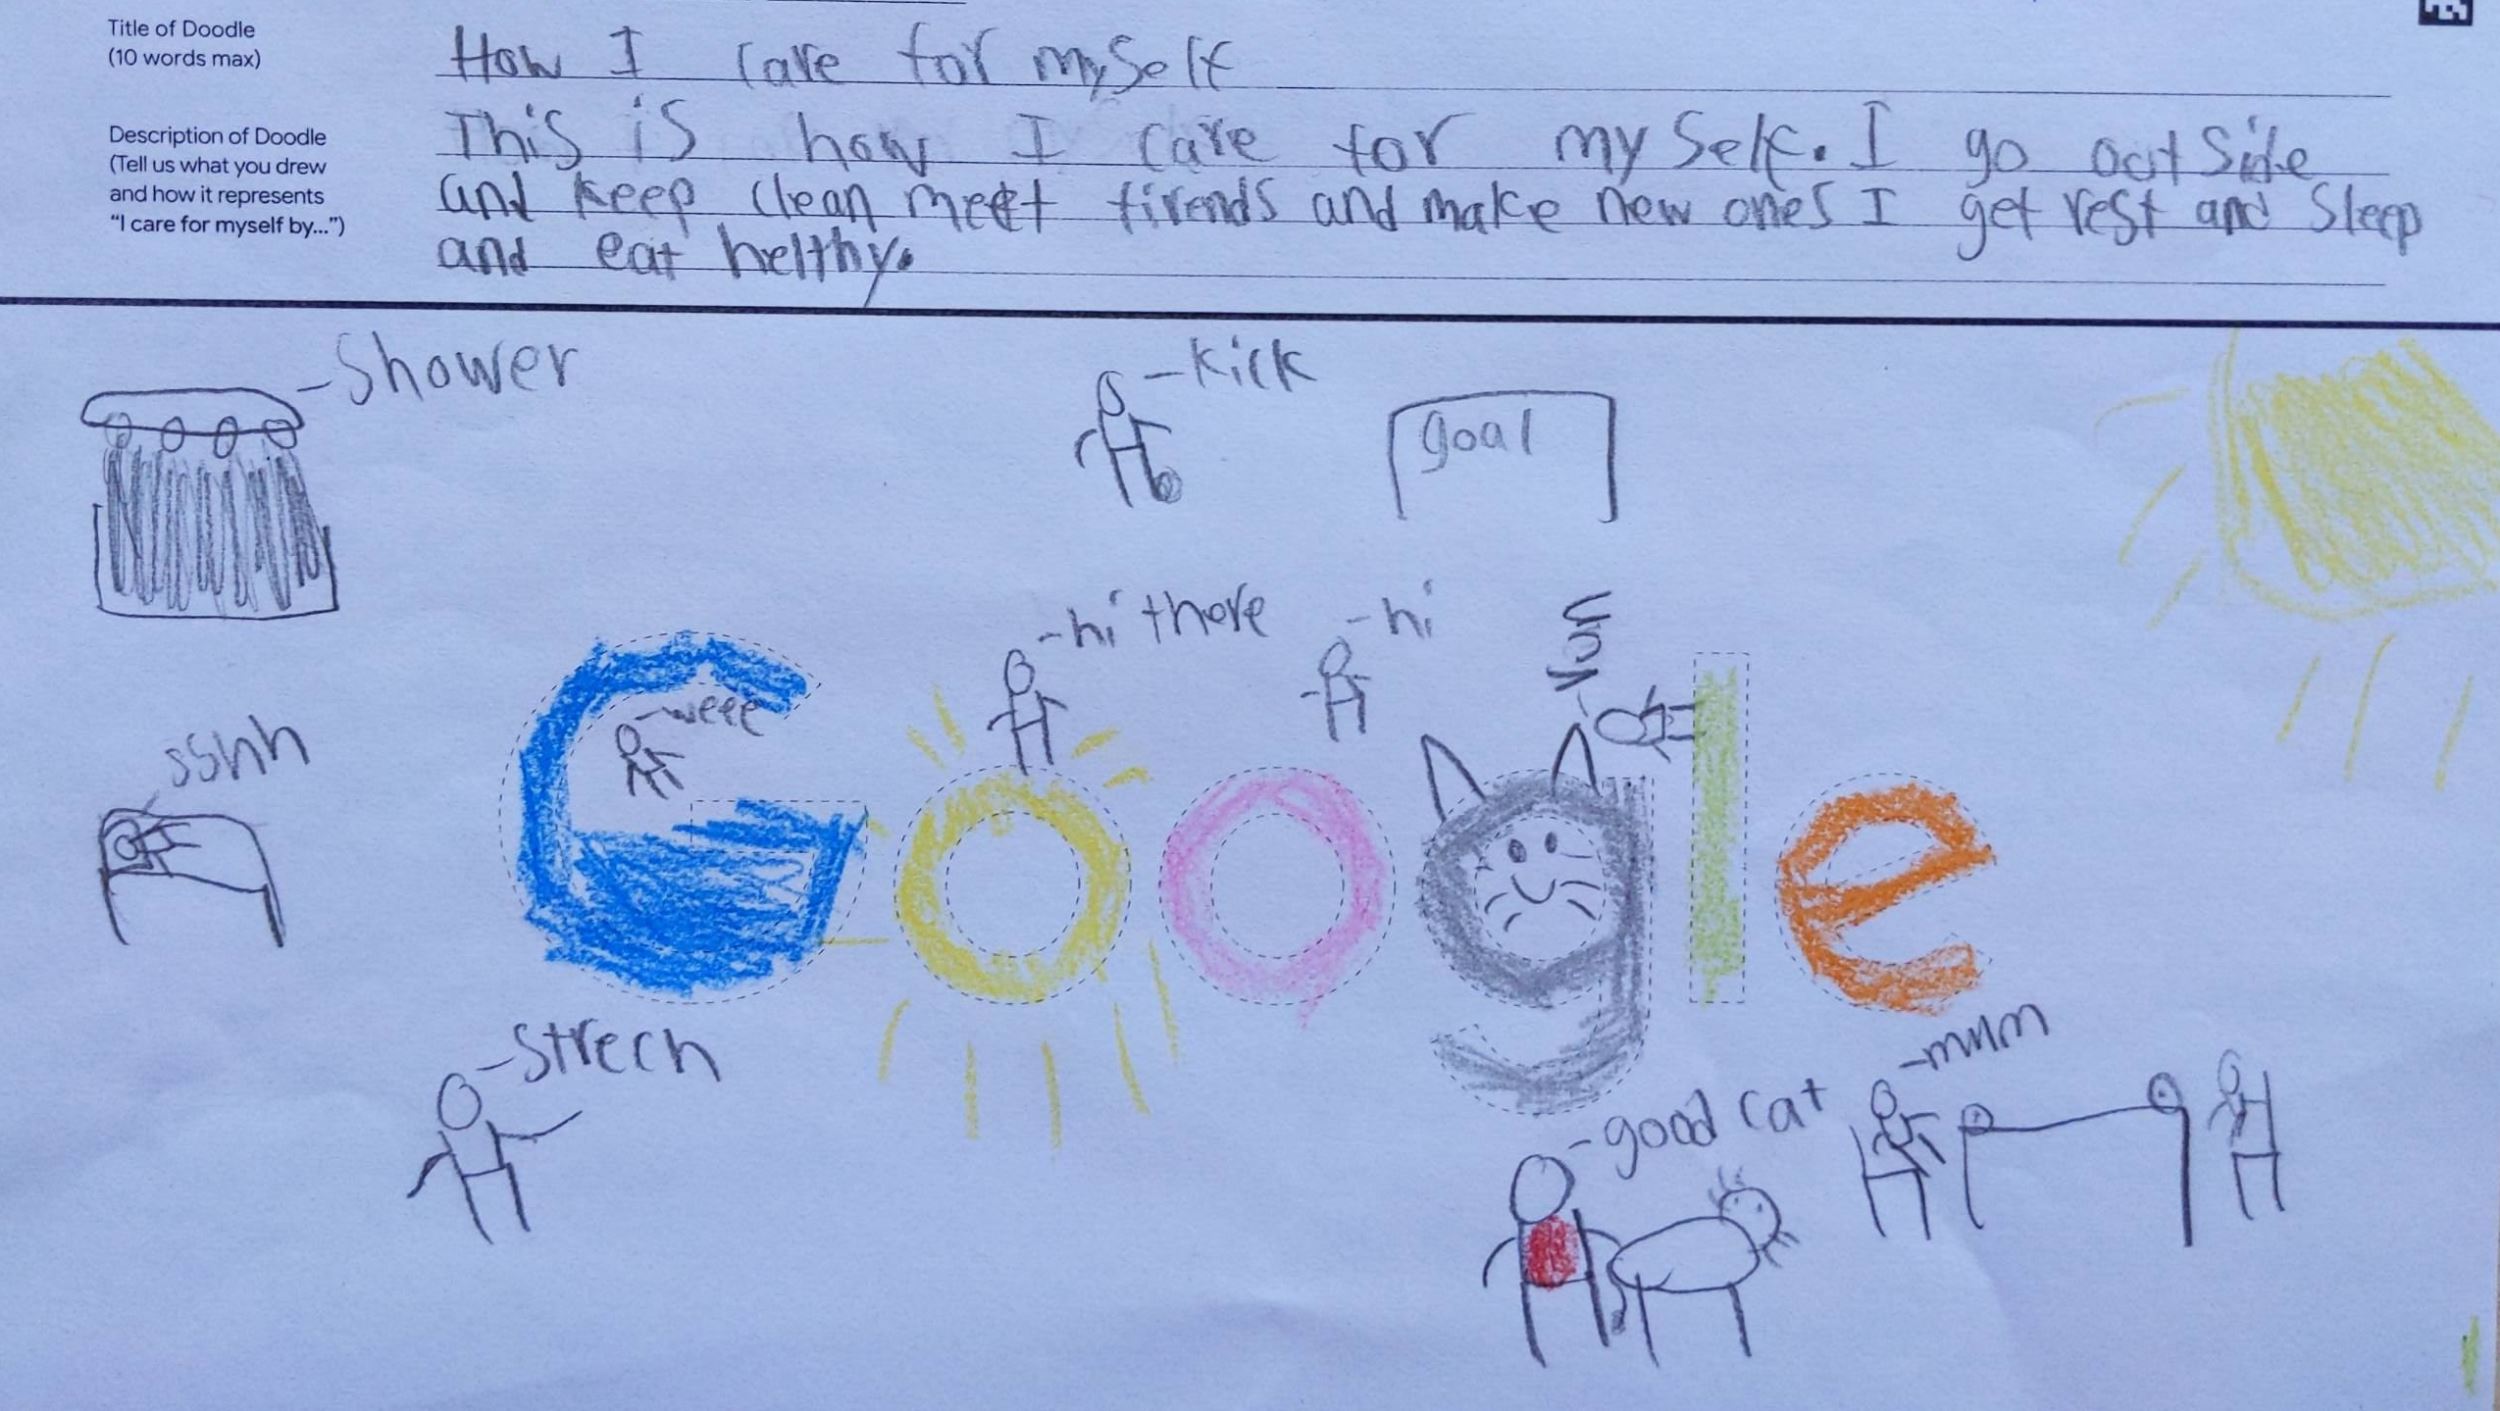 Title of Doodle
(10 words max)
How I care for myself
Description of Doodle
(Tell us what you drew
and how it represents
“I care for myself by...”)
This is how I care for my self. I go out side
and keep clean meet firends and make new ones I get rest and sleep
and eat helthy.
-shower
-kick
goal
-hi there
-hi
-weee
sshh
Google
-strech
-mmm
-good cat